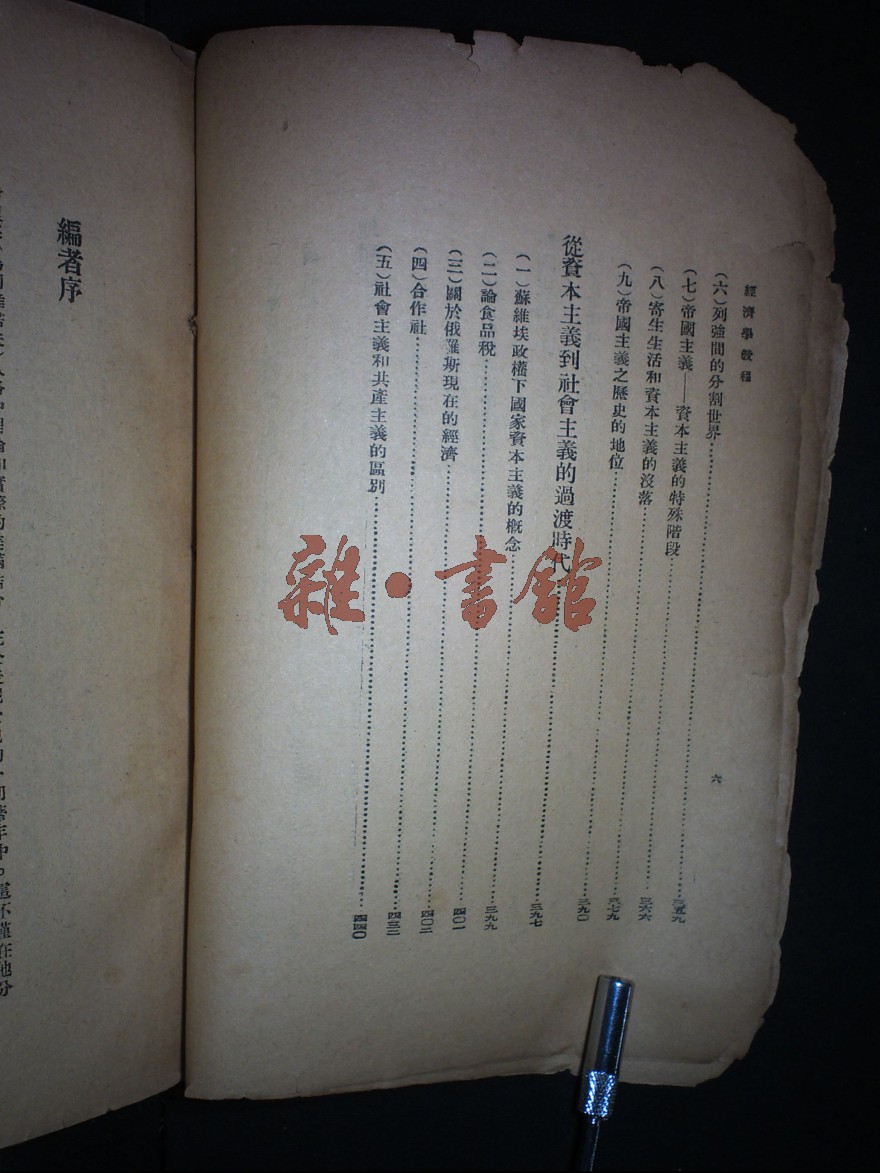 經濟學教程
六
(六)列強間的分割世界……三五九
(七)帝國主義——資本主義的特殊階段……三六六
(八)寄生生活和資本主義的沒落……三七九
(九)帝國主義之歷史的地位……三九〇
從資本主義到社會主義的過渡時代……三九七
(一)蘇維埃政權下國家資本主義的概念……三九九
(二)論食品稅……四〇一
(三)關於俄羅斯現在的經濟……四〇二
(四)合作社……四三二
(五)社會主義和共產主義的區別……四四〇
編者序
這不僅在他分
雜·書館